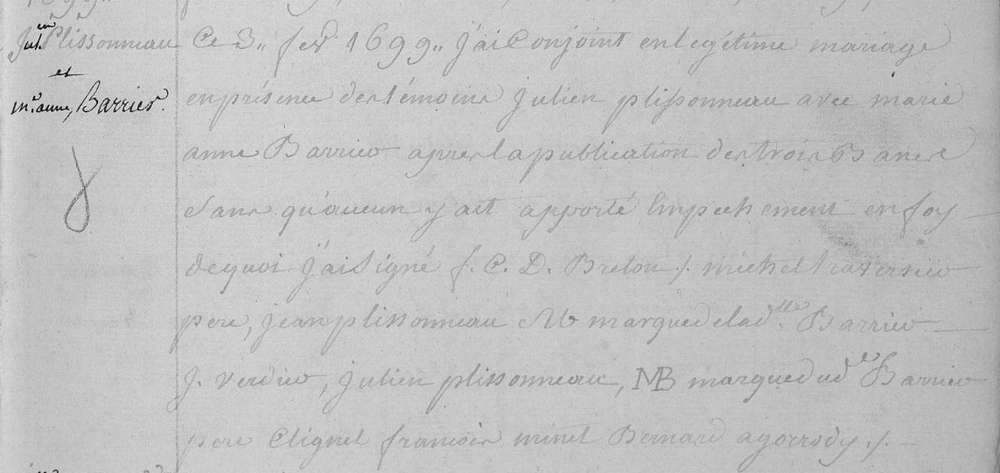 Jul.en Plissonneau
et
m.e anne, Barrier.
Ce 3,, fer 1699,, j'ai Conjoint en legétime mariage
en présence des témoins Julien plissonneau avec marie
anne Barrier apres la publication des trois Bancs
Sans qu'aucun y ait apporté Empechement en foy
de quoi j'ai Signé f. C. D. Breton /. michel traversier
pere, jean plissonneau MB marque de lad.lle Barrier
J. verdier, julien plissonneau, MB marque dud.e Barrier
pere Clignet francois minet Bernard /.